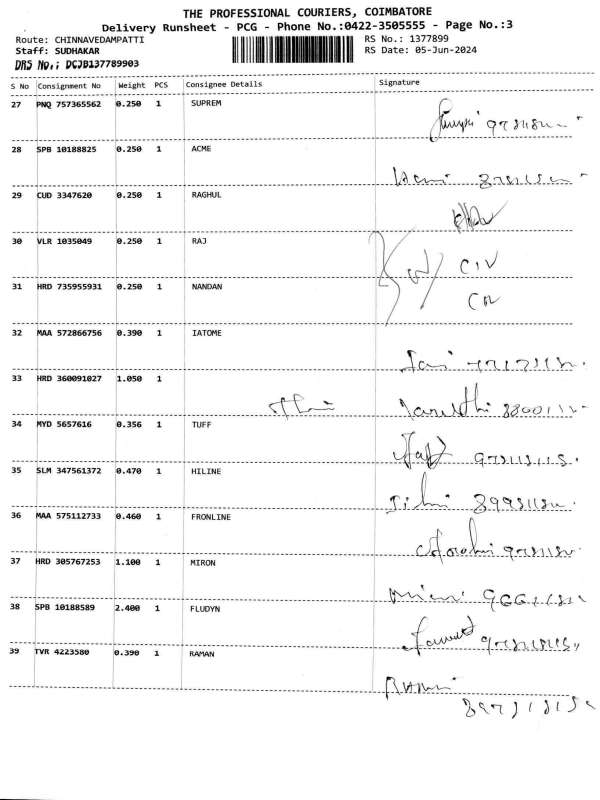 THE PROFESSIONAL COURIERS, COIMBATORE
Delivery Runsheet - PCG - Phone No.:0422-3505555 - Page No.:3
Route: CHINNAVEDAMPATTI RS No.: 1377899
Staff: SUDHAKAR RS Date: 05-Jun-2024
DRS No.: DCJB137789903
S No Consignment No Weight PCS Consignee Details Signature
27 PNQ 757365562 0.250 1 SUPREM
28 SPB 10188825 0.250 1 ACME
29 CUD 3347620 0.250 1 RAGHUL
30 VLR 1035049 0.250 1 RAJ
31 HRD 735955931 0.250 1 NANDAN
32 MAA 572866756 0.390 1 IATOME
33 HRD 360091027 1.050 1
34 MYD 5657616 0.356 1 TUFF
35 SLM 347561372 0.470 1 HILINE
36 MAA 575112733 0.460 1 FRONLINE
37 HRD 305767253 1.100 1 MIRON
38 SPB 10188589 2.400 1 FLUDYN
39 TVR 4223580 0.390 1 RAMAN